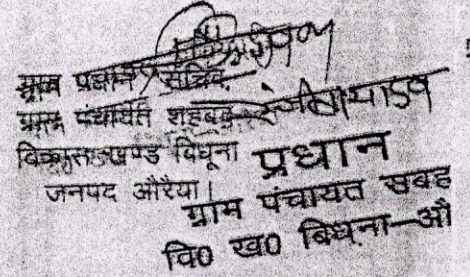 ग्राम प्रधान / सचिव
ग्राम पंचायत शहबद
विकास खण्ड विधूना
जनपद औरैया।
प्रधान
ग्राम पंचायत सबहद
वि0 ख0 बिधूना—औ